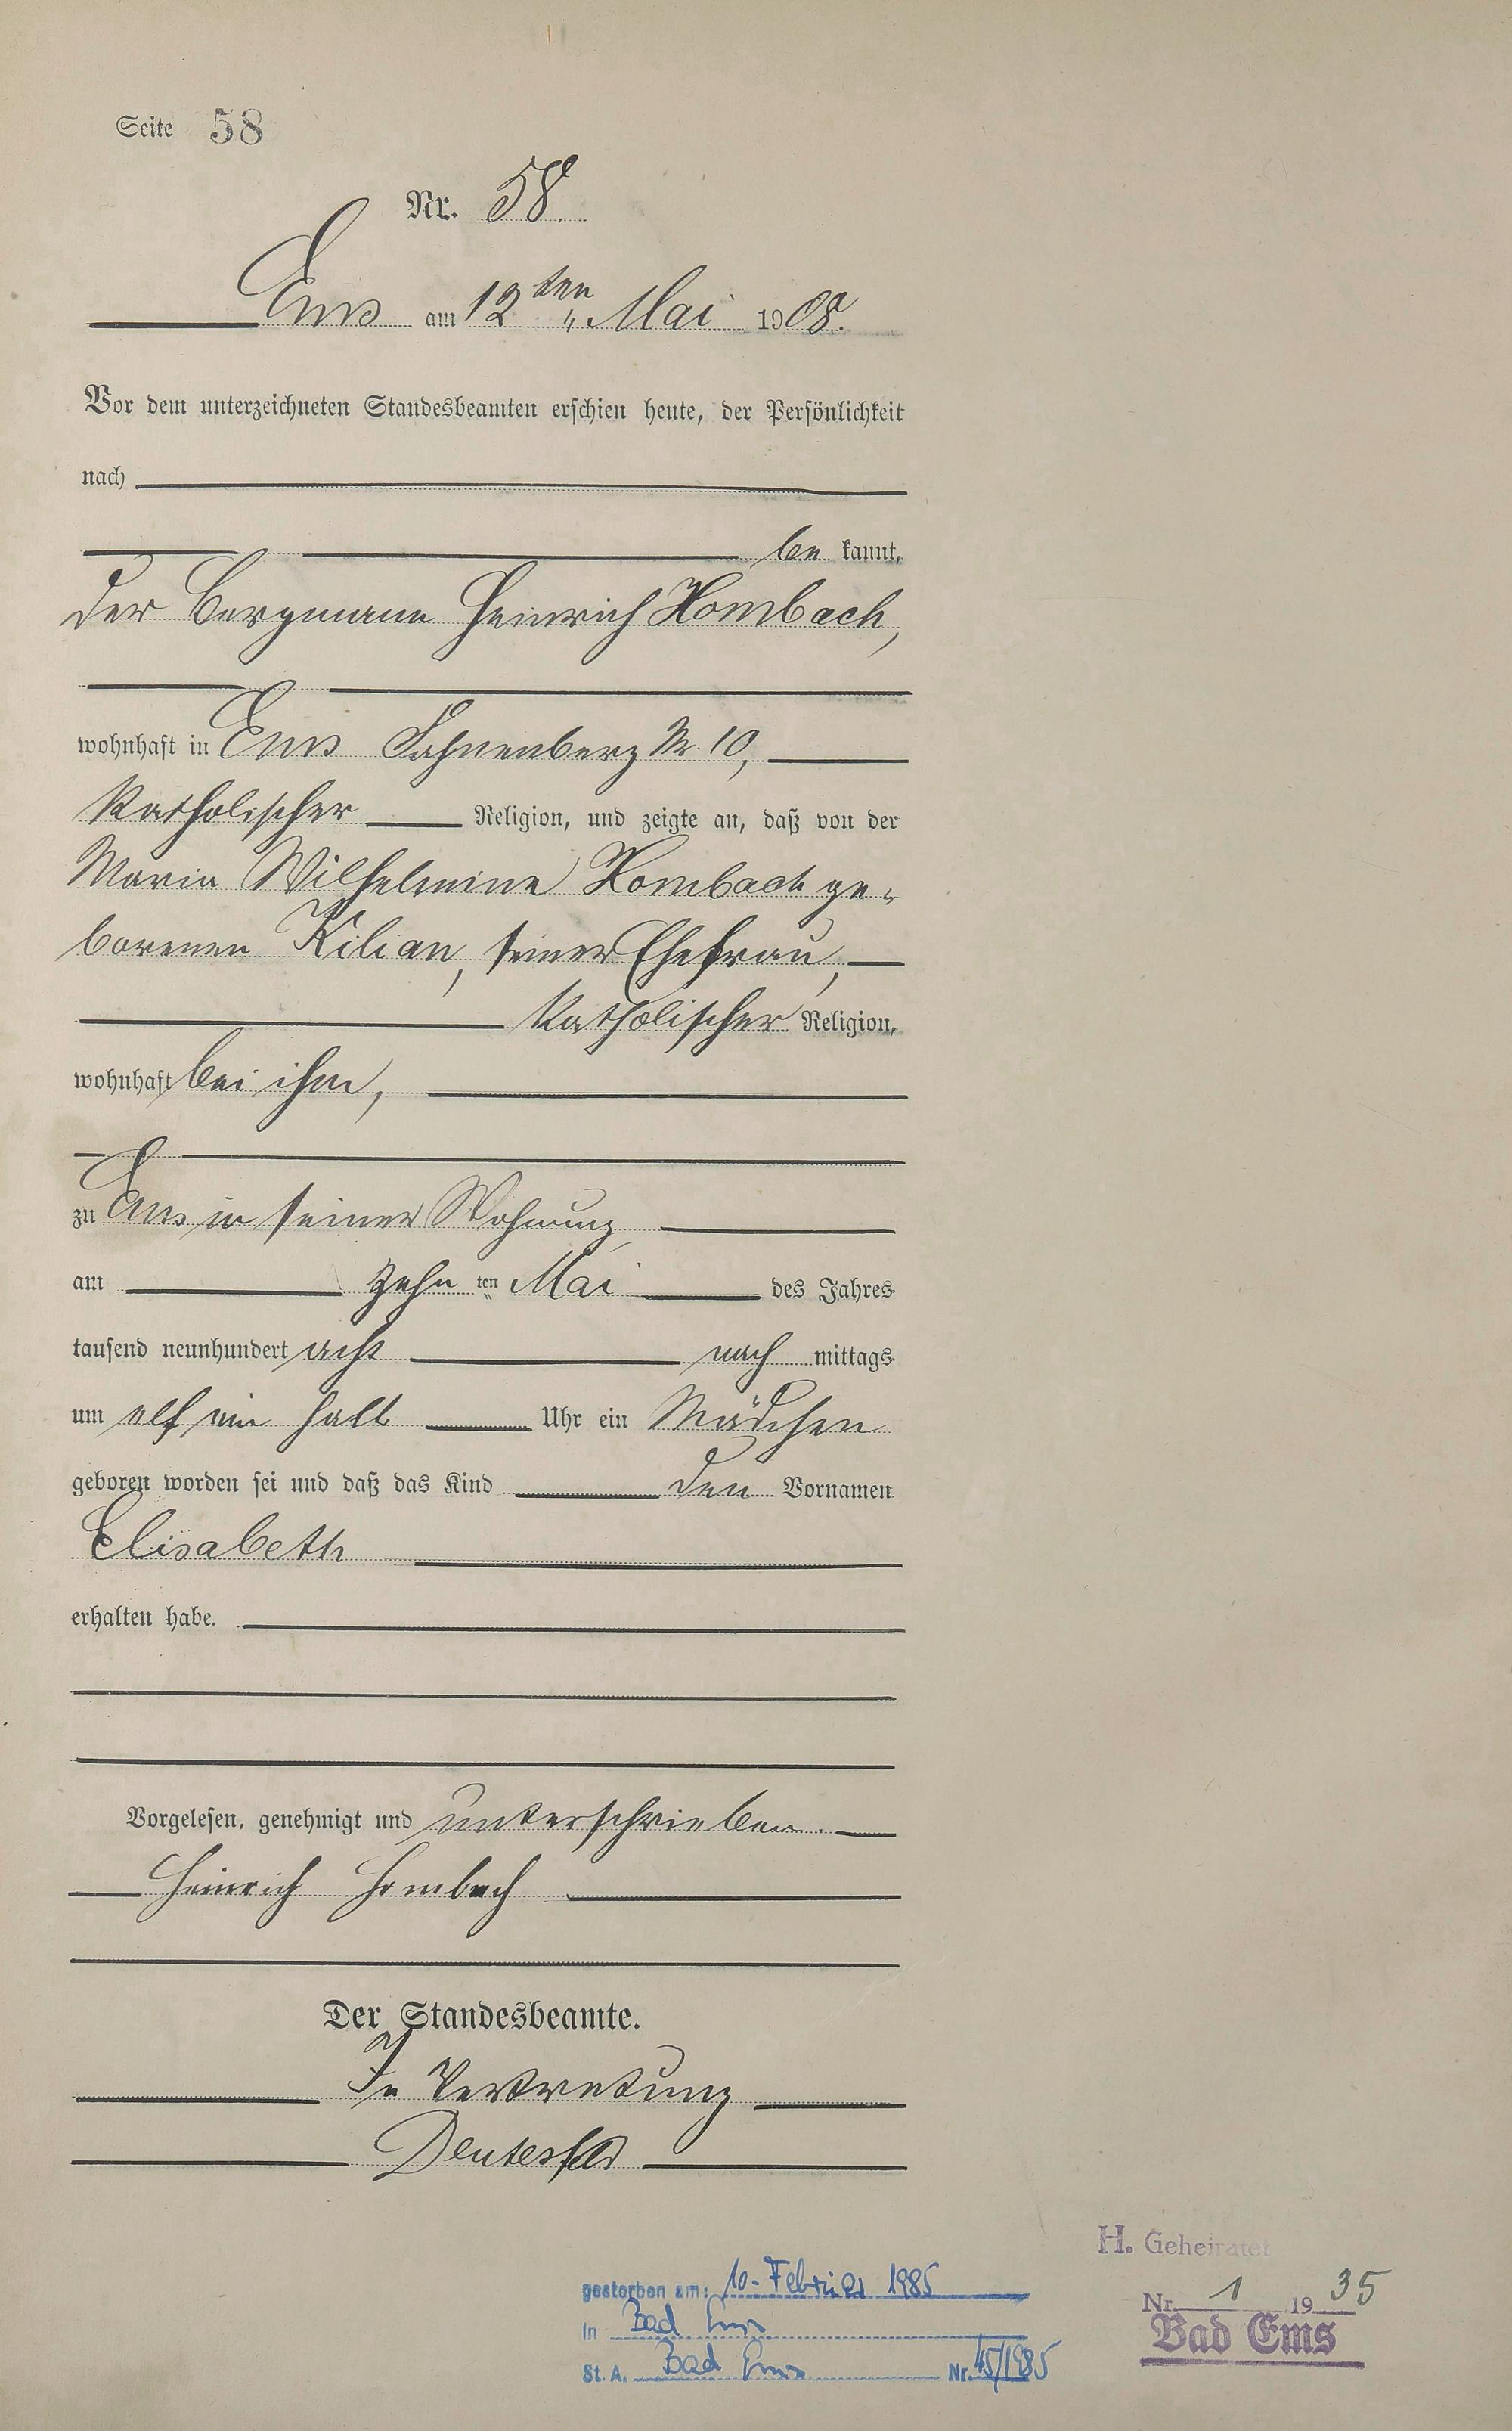 Seite 58
Nr. 58.
Ems am 12ten Mai 1908.
Vor dem unterzeichneten Standesbeamten erschien heute, der Persönlichkeit
nach
be kannt,
der Bergmann Heinrich Hombach,
wohnhaft in Ems Nr. 10,
Katholischer Religion, und zeigte an, daß von der
Maria Wilhelmine Hombach ge-
borenen Kilian, seiner Ehefrau,
Katholischer Religion,
wohnhaft bei ihm,
zu Ems in seiner Wohnung
am zehn ten Mai des Jahres
tausend neunhundert acht nach mittags
um elf ein halb Uhr ein Mädchen
geboren worden sei und daß das Kind den Vornamen
Elisabeth
erhalten habe.
Vorgelesen, genehmigt und unterschrieben.
Heinrich Hombach
Der Standesbeamte.
In Vertretung
H. Geheiratet
gestorben am: 10. Februar 1985
Nr. 1 1935
In Bad Ems
Bad Ems
St. A. Bad Ems Nr. 45/1985